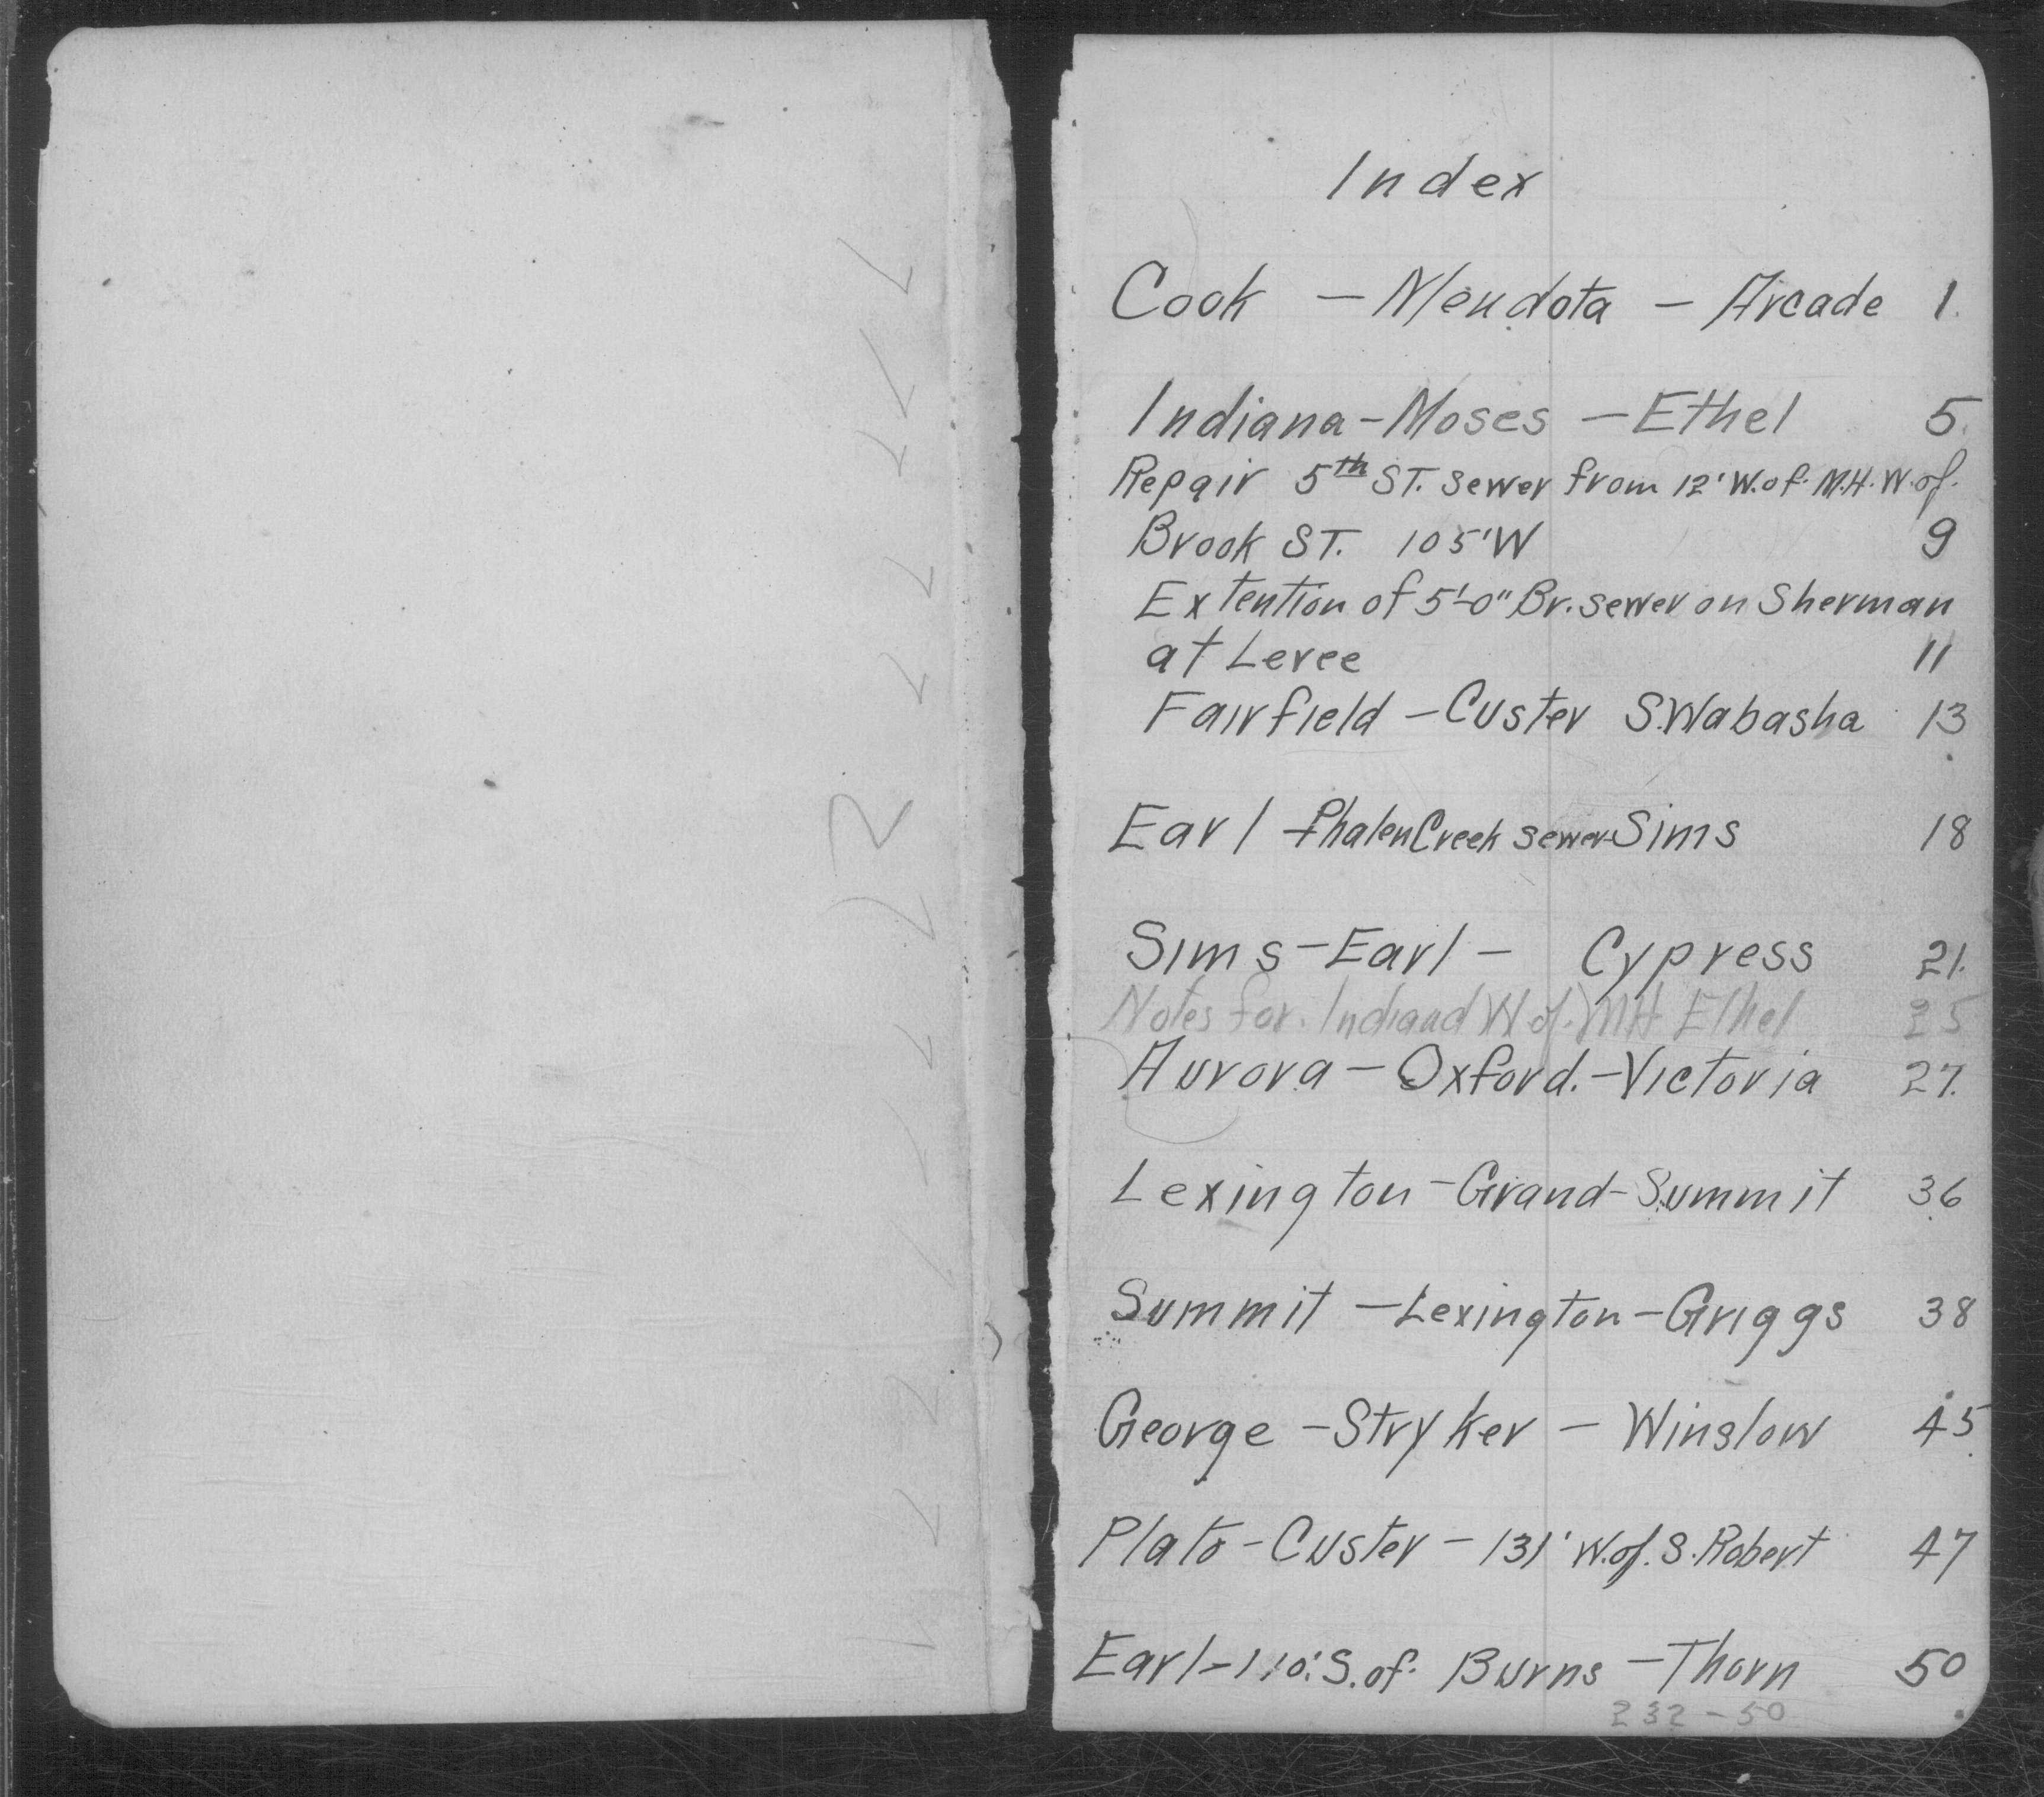 Index
Cook - Mendota - Arcade 1.
Indiana - Moses - Ethel 5.
Repair 5th ST. sewer from 12' W. of. M.H. W. of.
Brook ST. 105' W 9
Extention of 5'-0" Br. sewer on Sherman
at Levee 11
Fairfield - Custer S. Wabasha 13
Earl - Phalen Creek sewer - Sims 18
Sims - Earl - Cypress 21.
Notes for. Indiana W. of. MH Ethel 25
Aurora - Oxford. - Victoria 27.
Lexington - Grand - Summit 36
Summit - Lexington - Griggs 38
George - Stryker - Winslow 45
Plato - Custer - 131' W. of. S. Robert 47
Earl - 110' S. of. Burns - Thorn 50
232-50